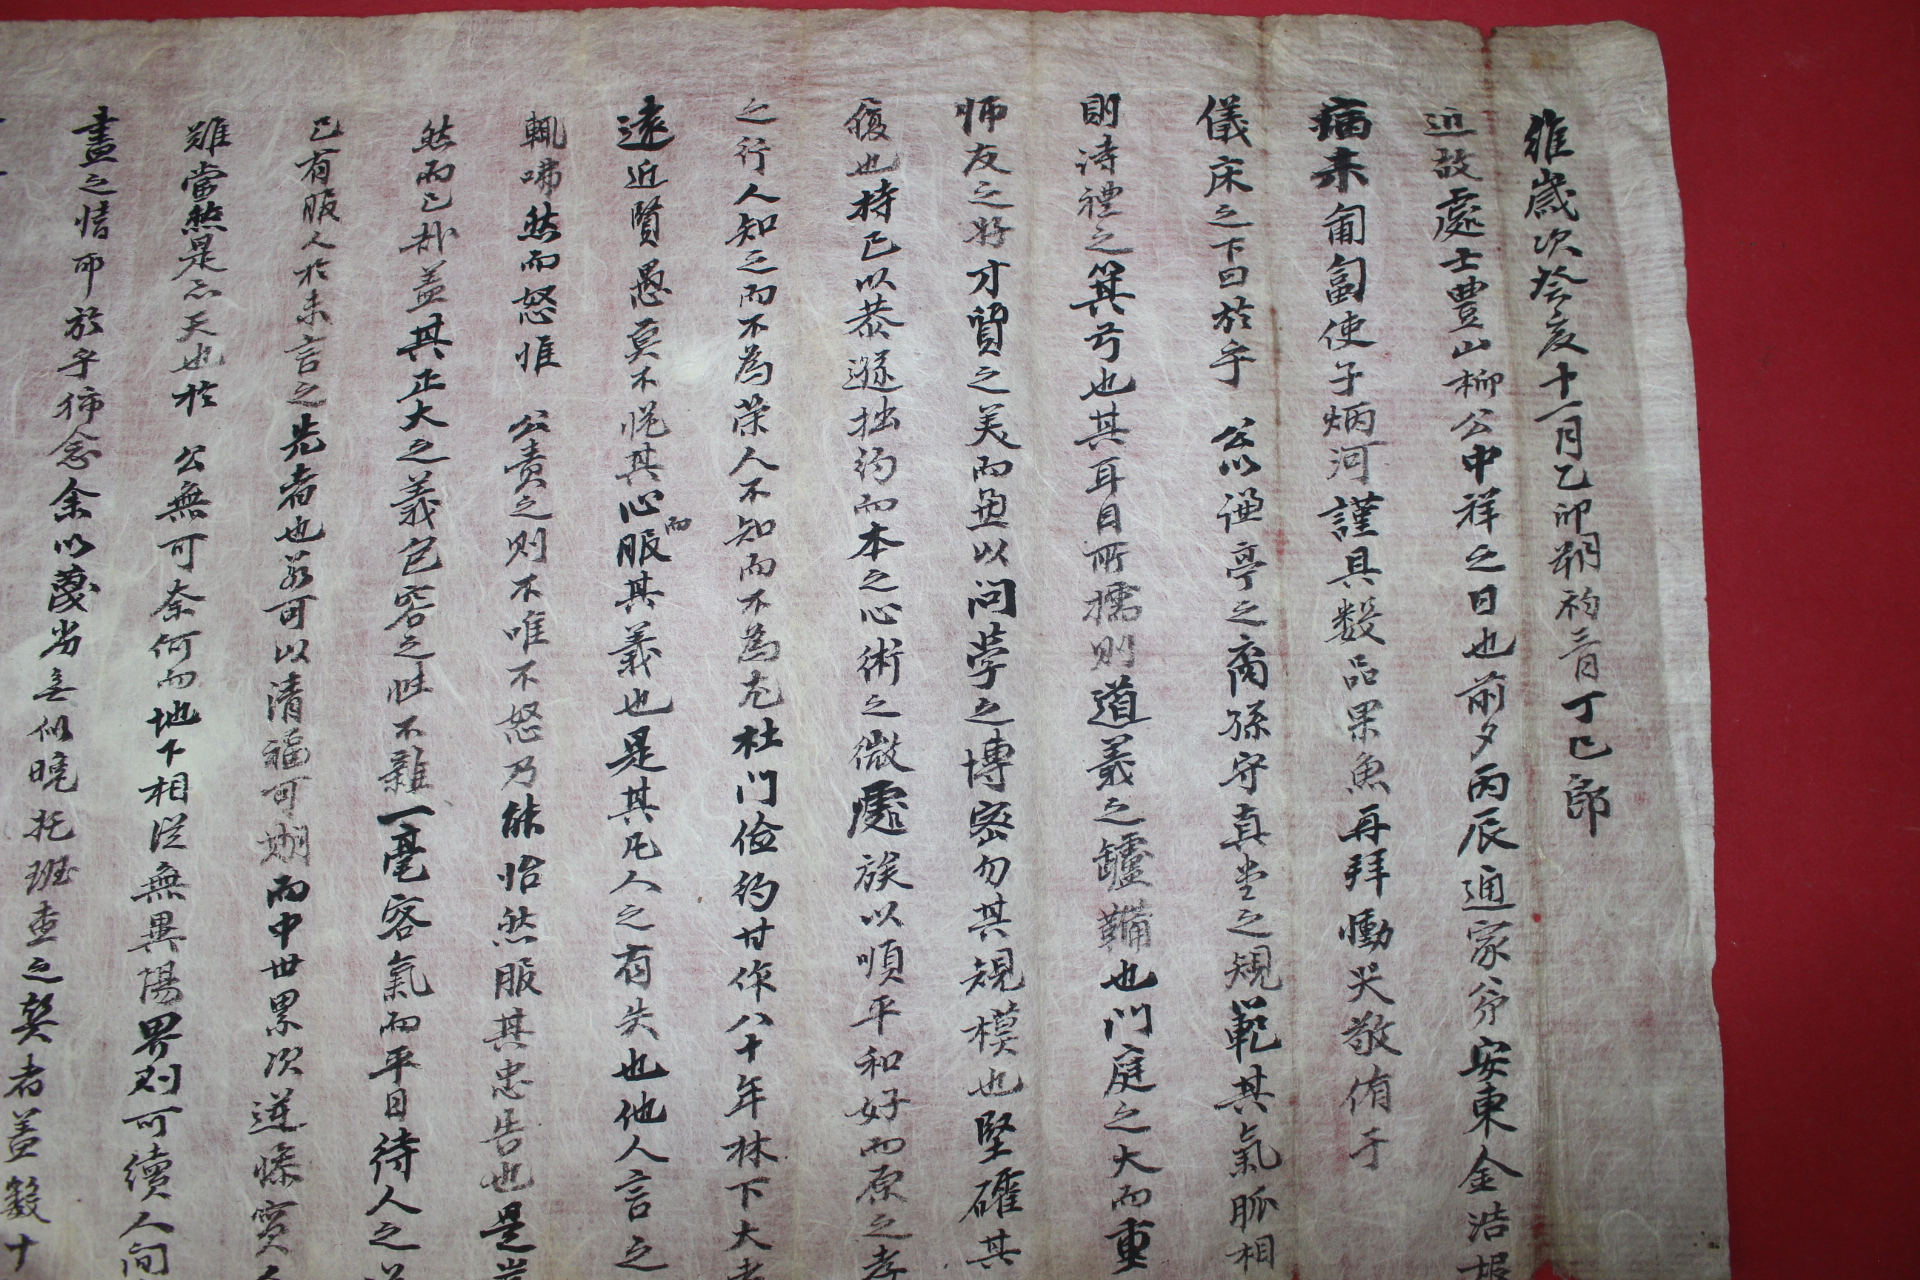 維歲次癸亥十一月乙卯朔初三日丁巳郎
近故處士豊山柳公中祥之日也前夕丙辰通家弟安東金浩根
病未匍匐使子炳河謹具數品果魚再拜慟哭敬侑于
儀床之下曰於乎 公以謙亭之裔孫守真堂之規範其氣脈相
則詩禮之箕弓也其耳目所擩則道義之罏鞴也門庭之大而重
師友之好才質之美而兼以問學之博密勿其規模也堅確其
履也持己以恭遜拙約而本之心術之微處族以順平和好而原之孝
之行人知之而不為榮人不知而不為尤杜門儉約甘作八十年林下大老
遠近賢愚莫不悅其心而服其義也是其凡人之有失也他人言之
輒咈然而怒惟 公責之則不唯不怒乃能怡然服其忠告也是豈
然而已哉盖其正大之義包容之性不雜一毫客氣而平日待人之道
已有服人於未言之先者也若可以清福可期而中世累次逆慘實人
雖當然是亦天也於 公無可奈何而地下相從無異陽界則可續人間
晝之情而於乎痛念余以蔑劣無似晩托瓊查之契者盖數十